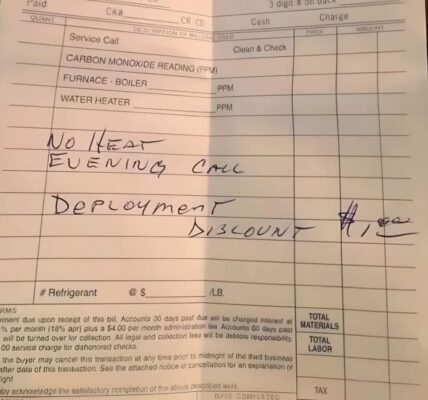 Paid CK# CR. CD. Cash 3 digit # on back Charge
QUANT. DESCRIPTION OF MATERIAL USED PRICE AMOUNT
Service Call Clean & Check
CARBON MONOXIDE READING (PPM)
FURNACE - BOILER PPM
WATER HEATER PPM
NO HEAT
EVENING CALL
DEPLOYMENT
DISCOUNT $1.00
# Refrigerant @ $ /LB.
RMS
yment due upon receipt of this bill. Accounts 30 days past due will be charged interest at
% per month (18% apr) plus a $4.00 per month administration fee. Accounts 60 days past
will be turned over for collection. All legal and collection fees will be debtors responsibility.
.00 service charge for dishonored checks.
TOTAL
MATERIALS
the buyer may cancel this transaction at any time prior to midnight of the third business
after date of this transaction. See the attached notice of cancellation for an explanation of
right
TOTAL
LABOR
by acknowledge the satisfactory completion of the above described work.
TAX
DATE COMPLETED